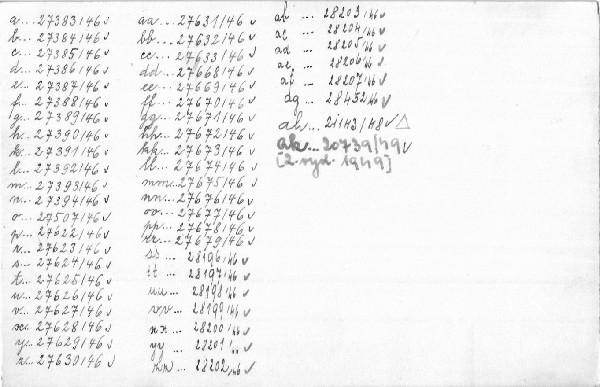 a... 27383/46 ✓
b... 27384/46 ✓
c... 27385/46 ✓
d... 27386/46 ✓
e... 27387/46 ✓
f... 27388/46 ✓
g... 27389/46 ✓
h... 27390/46 ✓
k... 27391/46 ✓
l... 27392/46 ✓
m... 27393/46 ✓
n... 27394/46 ✓
o... 27507/46 ✓
p... 27622/46 ✓
r... 27623/46 ✓
s... 27624/46 ✓
t... 27625/46 ✓
u... 27626/46 ✓
v... 27627/46 ✓
x... 27628/46 ✓
y... 27629/46 ✓
z... 27630/46 ✓
aa... 27631/46 ✓
bb... 27632/46 ✓
cc... 27633/46 ✓
dd... 27668/46 ✓
ee... 27669/46 ✓
ff... 27670/46 ✓
gg... 27671/46 ✓
hh... 27672/46 ✓
kk... 27673/46 ✓
ll... 27674/46 ✓
mm... 27675/46 ✓
nn... 27676/46 ✓
oo... 27677/46 ✓
pp... 27678/46 ✓
rr... 27679/46 ✓
ss ... 28196/46 ✓
tt ... 28197/46 ✓
uu ... 28198/46 ✓
vv... 28199/46 ✓
xx ... 28200/46 ✓
yy ... 28201/,, ✓
zz ... 28202/46 ✓
ab ... 28203/46 ✓
ac ... 28204/46 ✓
ad ... 28205/46 ✓
ae ... 28206/46 ✓
af ... 28207/46 ✓
ag ... 28452/46 ✓
ah... 21143/48 ✓ △
ak... 20739/49 ✓
[2. vyd. 1949]